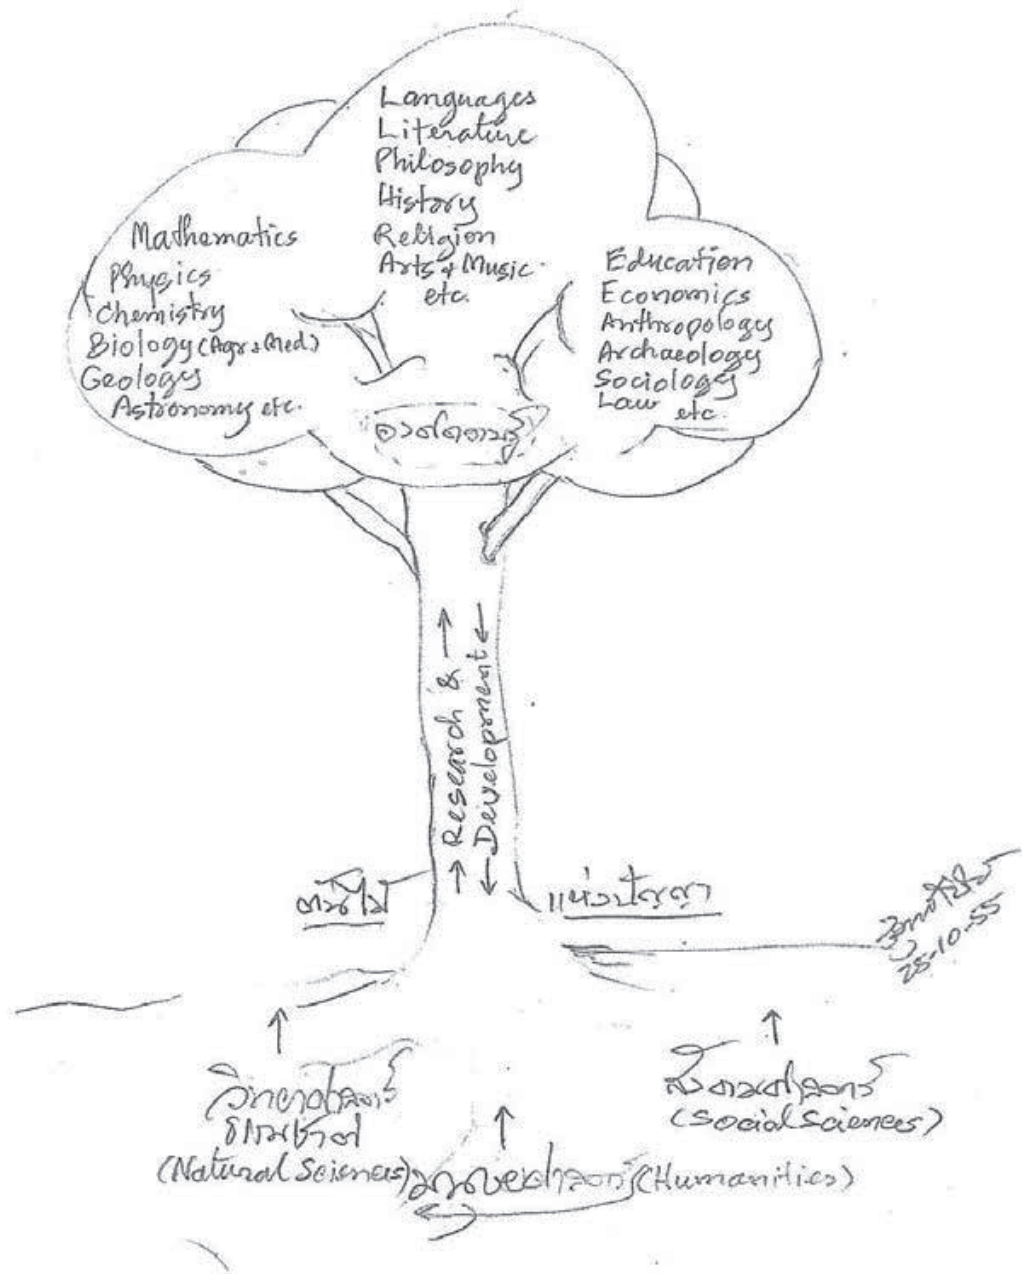 Languages
Literature
Philosophy
History
Religion
Arts & Music
etc.
Mathematics
Physics
Chemistry
Biology (Agr & Med.)
Geology
Astronomy etc.
Education
Economics
Anthropology
Archaeology
Sociology
Law etc.
องค์ความรู้
Research &
Development
ต้นไม้
แห่งปัญญา
25-10-55
วิทยาศาสตร์
ธรรมชาติ
(Natural Sciences)
สังคมศาสตร์
(Social Sciences)
มานุษยศาสตร์ (Humanities)